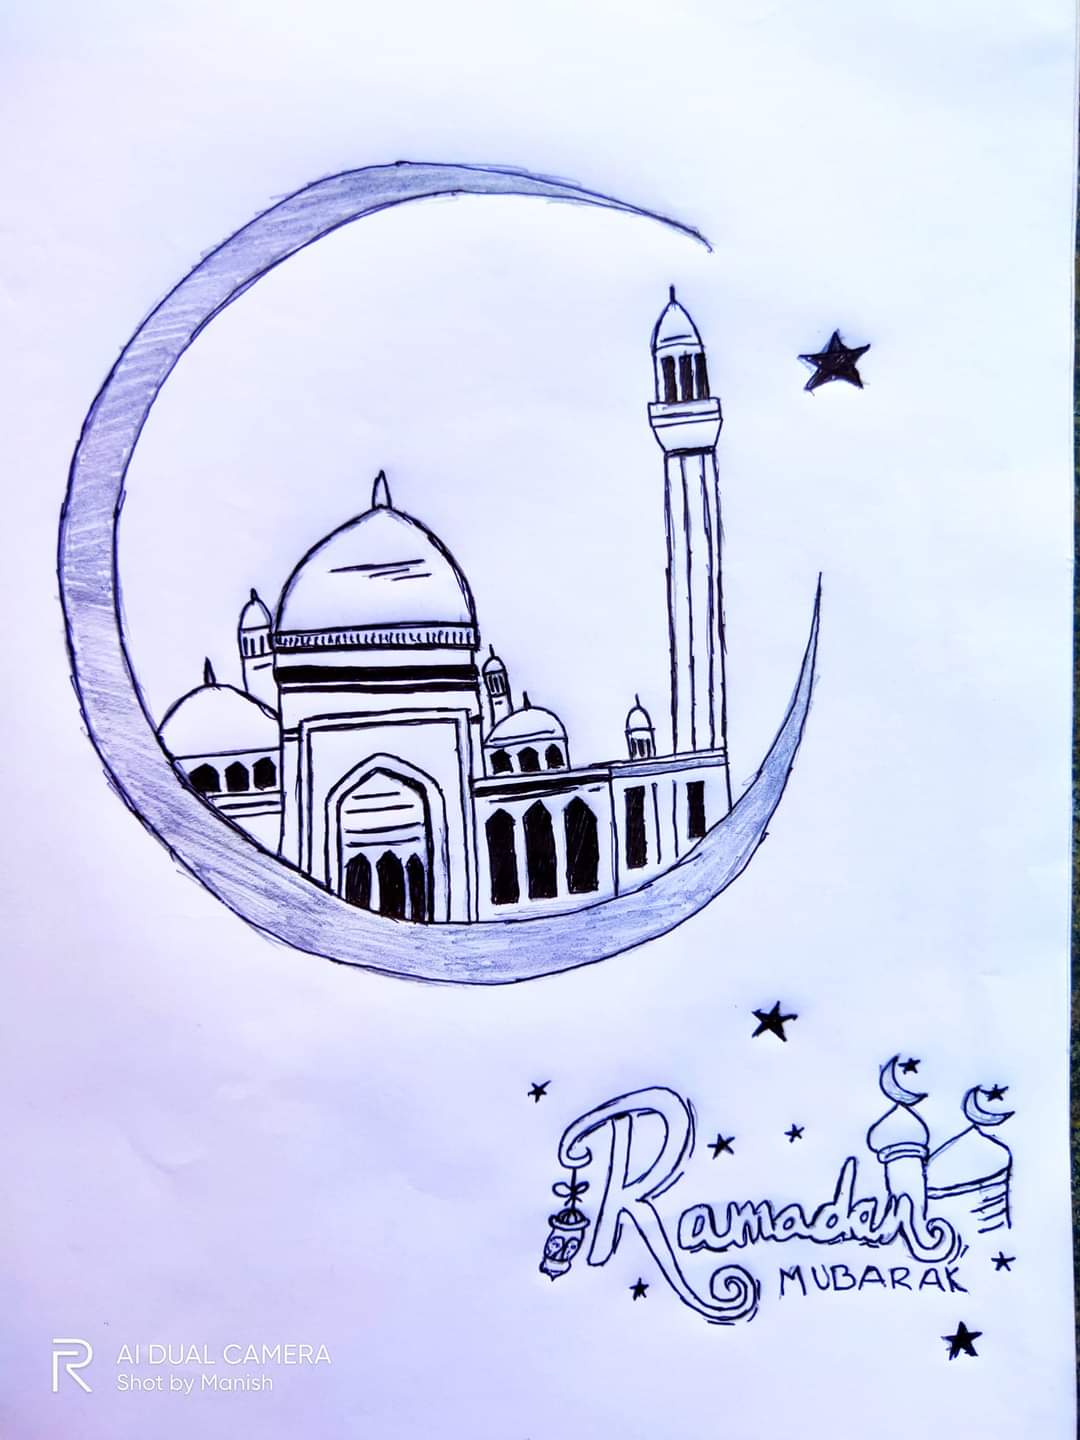 Ramadan
MUBARAK
AI DUAL CAMERA
Shot by Manish